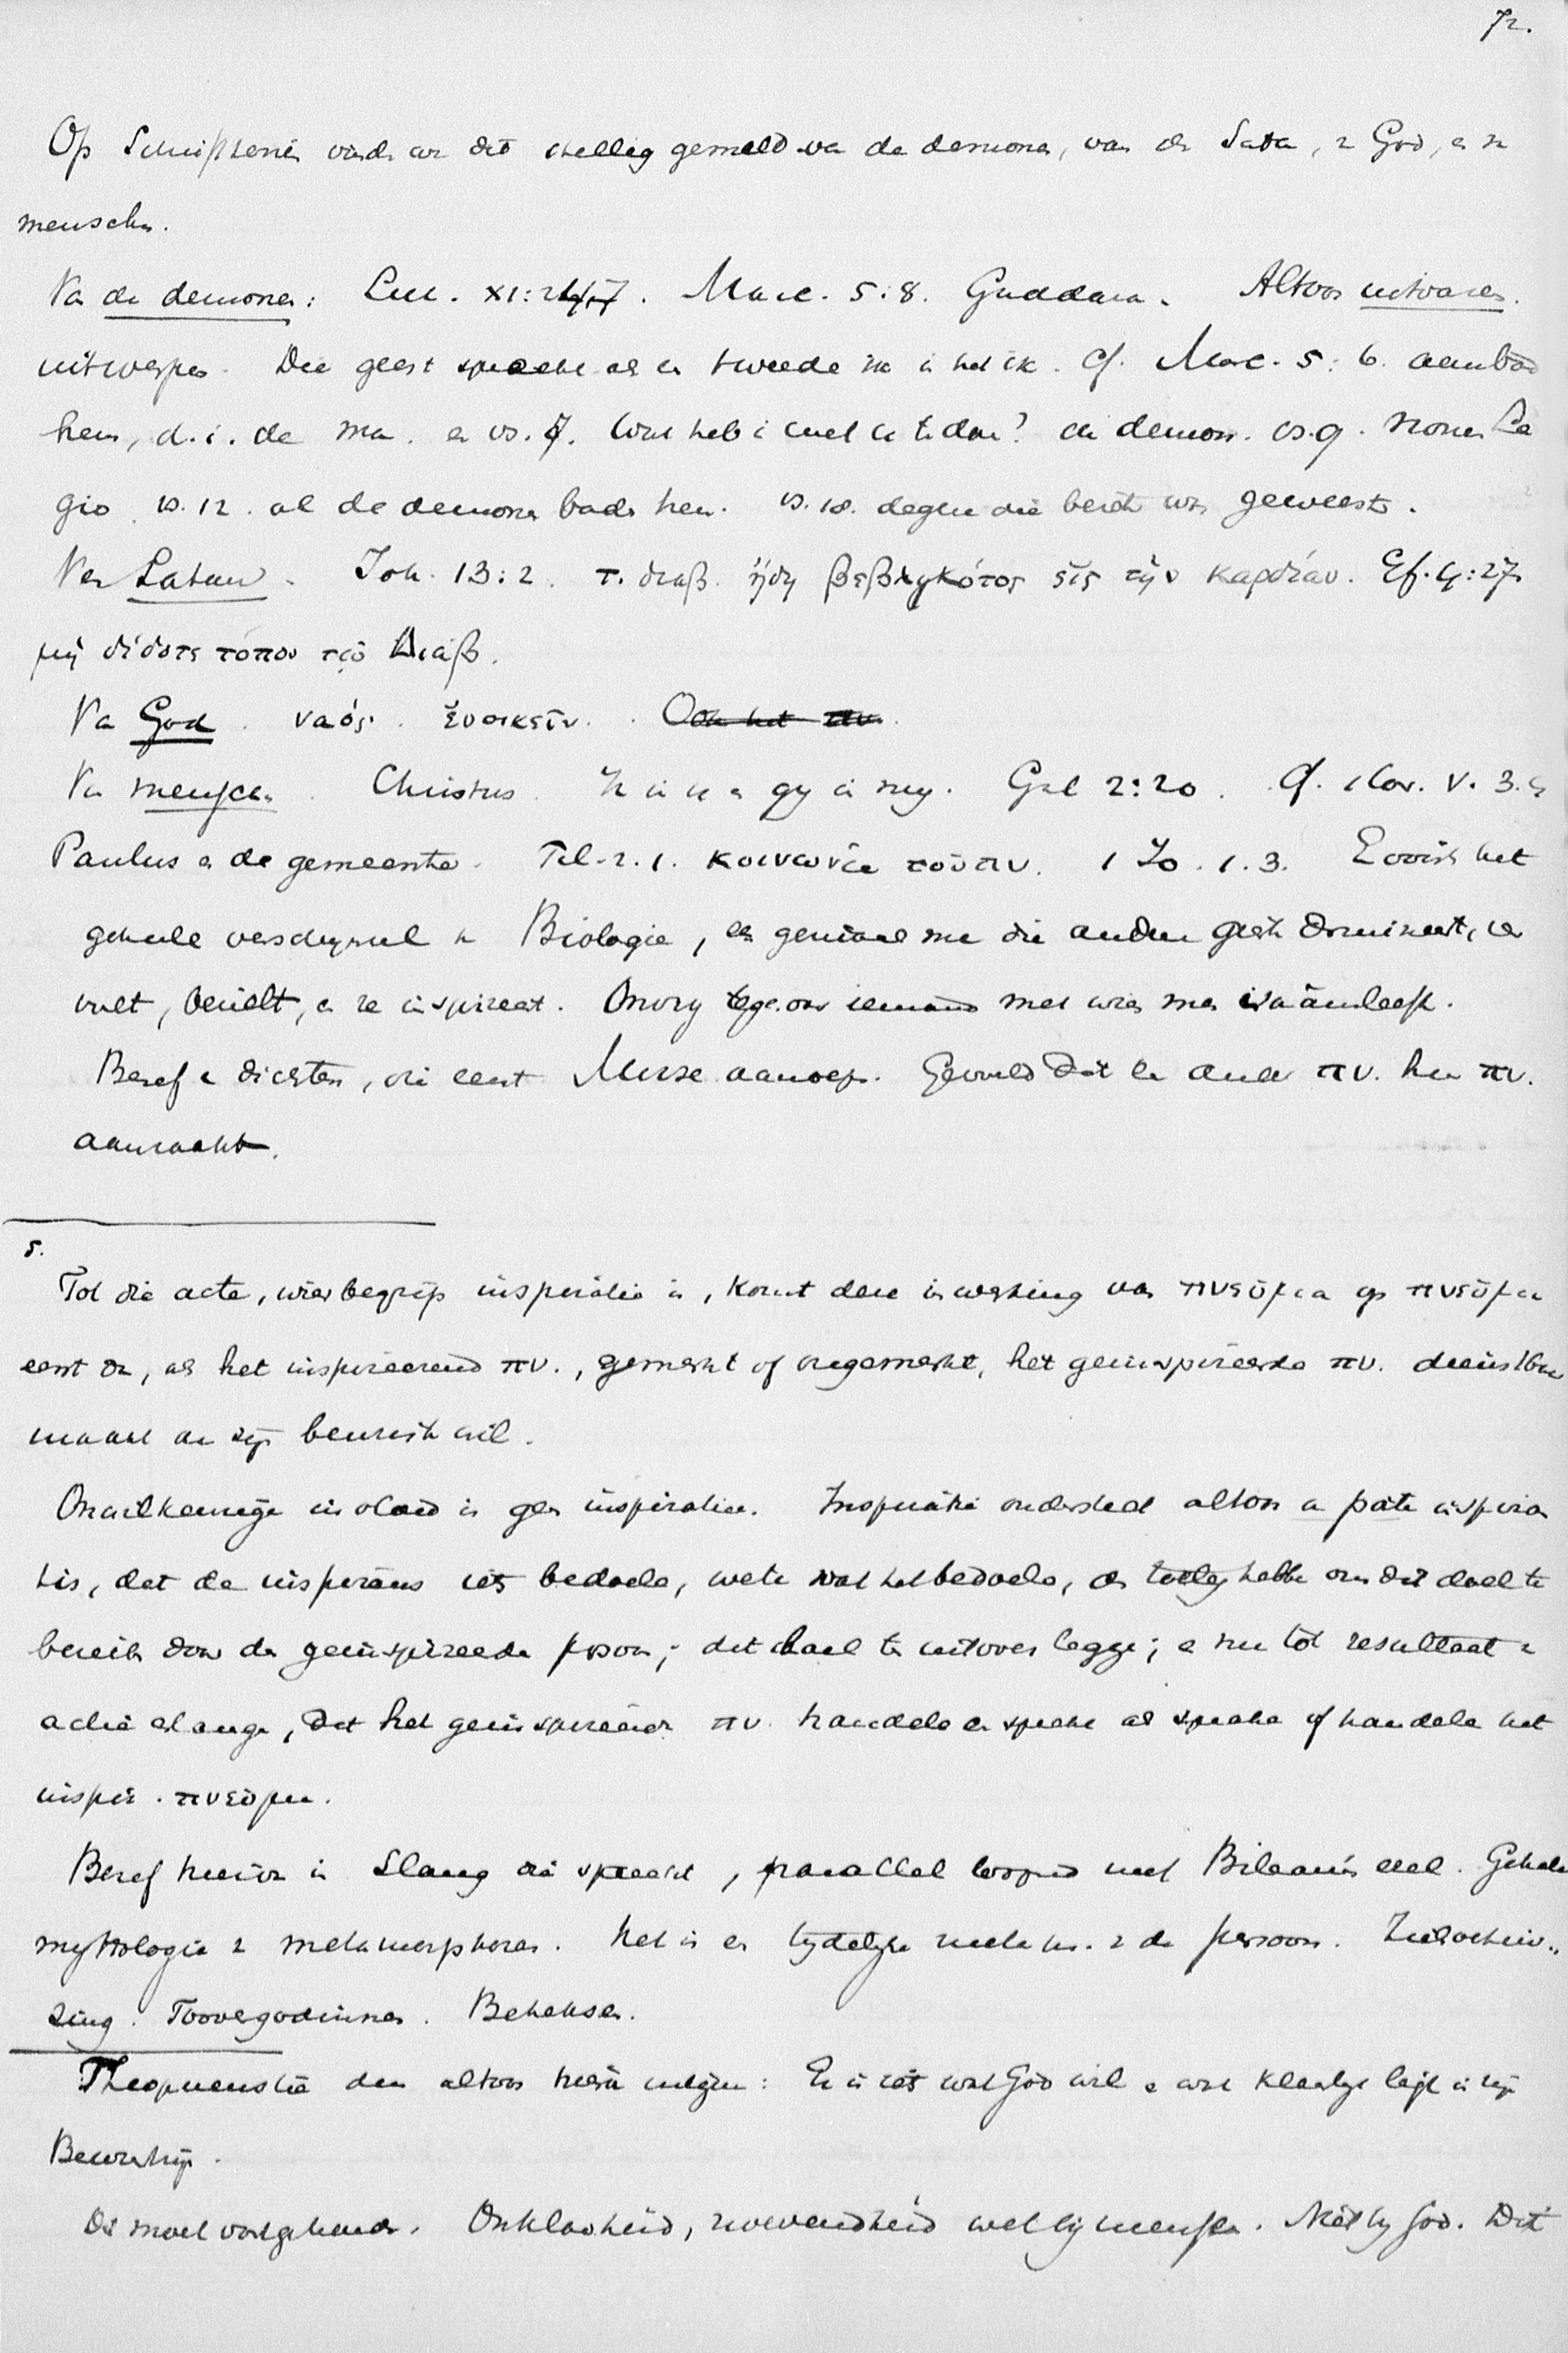 72.
Op Schriftterrein vinden we dit stellig gemeld van de demonen, van den Satan, v God, en v
menschen.
Van de demonen: Luc. XI:24. Marc. 5:8. Gaddara. Altoos uitvaren.
uitwerpen. Die geest spreekt als een tweede ik in het ik. Cf. Marc. 5:6. aanbad
hem, d.i. de man. en vs. 7. Wat heb ik met u te doen? de demon. vs. 9. Le
gio. vs. 12. al de demonen baden hem. vs. 18. degene die was geweest.
Van Satan. Joh. 13:2. τ. διαβ. ἤδη βεβληκότος εἰς τὴν καρδίαν. Ef. 4:27
μὴ δίδοτε τόπον τῷ Διαβ.
Van God. ναός. ἐνοικεῖν. Ook het πν.
Van menschen. Christus. Ik in u en gy in my. Gal 2:20. Cf. 1 Cor. V. 3.4
Paulus en de gemeente. Fil. 2.1. κοινωνία τοῦ πν. 1 Jo. 1.3. het
geheele verschynsel v Biologie, een geniaal man die andere geesten domineert, ver
vult, bezielt, en ze inspireert. Onvry tegenover iemand met wien men
Besef v dichters, die eerst Muze aanroepen. Gevoeld dat een ander πν. hun πν.
aanraakt.
5.
Tot die acte, wier begrip inspiratie is, komt deze inwerking van πνεῦμα op πνεῦμα
eerst dan, als het inspireerend πν., gemerkt of ongemerkt, het geïnspireerde πν. dienstbaar
maakt aan zijn bewusten wil.
Onwillekeurige invloed is geen inspiratie. Inspiratie onderstelt altoos a parte inspiran
tis, dat de inspirans iets bedoele, wete wat het bedoele, den toeleg hebbe om dit doel te
bereiken door den geïnspireerden persoon; dit doel te uitvoer legge; en nu tot resultaat v
actie erlange, dat het geïnspireerde πν. handele en spreke als sprake of handele het
inspir. πνεῦμα.
Besef hiervan in Slang die spreekt, parallel loopend met Bileam's ezel. Geheele
mythologie v metamorphosen. Het is een tydelyke v de persoon.
Toovergodinnen. Beheksen.
Theopneustie dan altoos hierin gelegen: Er is iets wat God wil en wat klaarlyk ligt in zijn
Bewustzijn.
Dit moet voorgehouden. Onklaarheid, wel by menschen. Niet by God. Dit